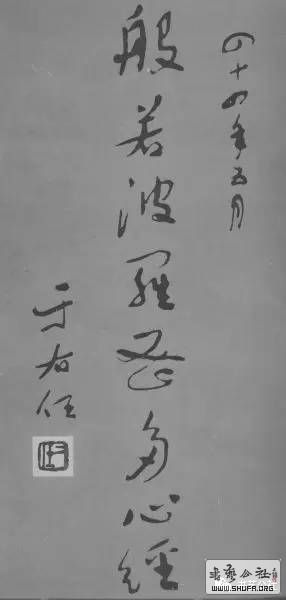 四十四年五月
般若波羅蜜多心經
于右任
书艺公社
WWW.SHUFA.ORG